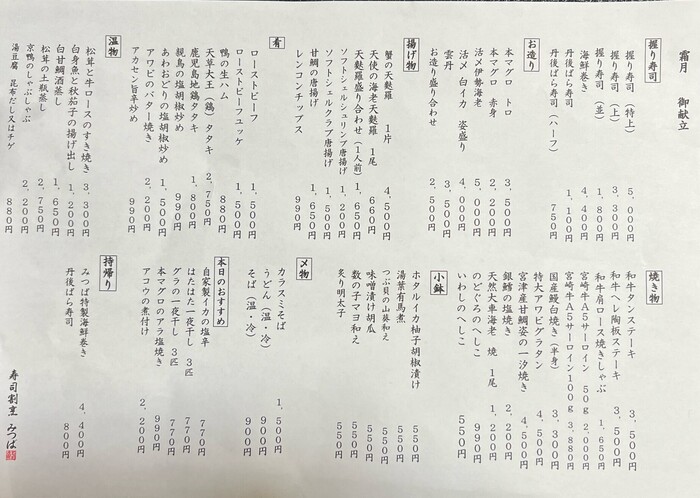 霜月　御献立
握り寿司
握り寿司（特上）　５，０００円
握り寿司（上）　３，３００円
握り寿司（並）　１，８００円
海鮮巻き　４，４００円
丹後ばら寿司　１，１００円
丹後ばら寿司（ハーフ）　７５０円
お造り
本マグロ　トロ　３，５００円
本マグロ　赤身　２，２００円
活〆伊勢海老　５，０００円
活〆白イカ　姿盛り　４，０００円
雲丹　３，５００円
お造り盛り合わせ　２，５００円
揚げ物
蟹の天麩羅　１片　４，５００円
天使の海老天麩羅　１尾　６６０円
天麩羅盛り合わせ（１人前）　１，６５０円
ソフトシェルシュリンプ唐揚げ　１，２００円
ソフトシェルクラブ唐揚げ　１，５００円
甘鯛の唐揚げ　１，６５０円
レンコンチップス　９９０円
肴
ローストビーフ　１，５００円
ローストビーフユッケ　１，５００円
鴨の生ハム　８８０円
天草大王（鶏）タタキ　２，７５０円
鹿児島地鶏タタキ　１，８００円
親鳥の塩胡椒炒め　９９０円
あわおどりの塩胡椒炒め　１，５００円
アワビのバター焼き　２，２００円
アカセン旨辛炒め　９９０円
温物
松茸と牛ロースのすき焼き　３，３００円
白身魚と秋茄子の揚げ出し　１，２００円
白甘鯛酒蒸し　２，２００円
松茸の土瓶蒸し　２，７５０円
京鴨のしゃぶしゃぶ　２，２００円
湯豆腐　昆布だし又はチゲ　８８０円
焼き物
和牛タンステーキ　３，５００円
和牛ヘレ陶板ステーキ　３，５００円
和牛肩ロース焼きしゃぶ　１，６５０円
宮崎牛Ａ５サーロイン　５０ｇ　２，０００円
宮崎牛Ａ５サーロイン１００ｇ　３，８８０円
国産鰻白焼き（半身）　３，３００円
特大アワビグラタン　４，５００円
宮津産甘鯛姿の一汐焼き　４，５００円
銀鱈の塩焼き　２，２００円
天然大車海老　焼　１尾　１，２００円
のどぐろのへしこ　９９０円
いわしのへしこ　５５０円
小鉢
ホタルイカ柚子胡椒漬け　５５０円
湯葉有馬煮　５５０円
つぶ貝の山葵和え　５５０円
味噌漬け胡瓜　５５０円
数の子マヨ和え　５５０円
炙り明太子　５５０円
〆物
カラスミそば　１，５００円
うどん（温・冷）　９００円
そば（温・冷）　９００円
本日のおすすめ
自家製イカの塩辛　７７０円
はたはた一夜干し　３匹　７７０円
グラの一夜干し　３匹　７７０円
本マグロのアラ塩焼き　９９０円
アコウの煮付け　２，２００円
持帰り
みつば特製海鮮巻き　４，４００円
丹後ばら寿司　８００円
寿司割烹　みつば